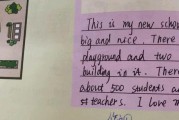 This is my new schoo
big and nice. There
playground and two
building is it. There
about 500 students an
teachers. I love m